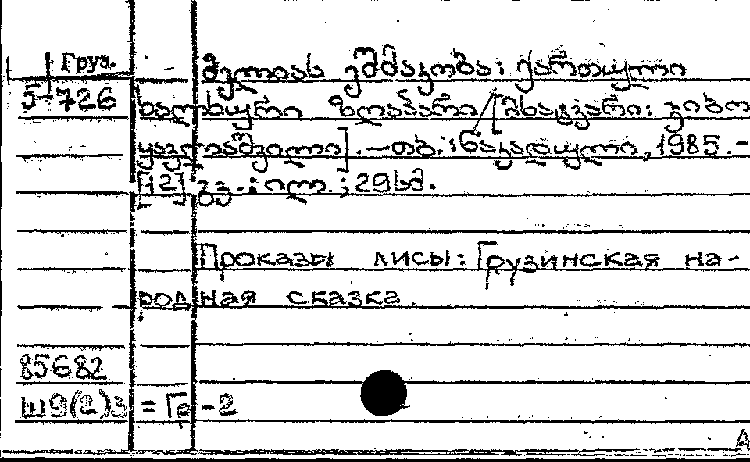 Груз.
მელიას ეშმაკობა: ქართული
5-726 ხალხური ზღაპარი [მხატვარი: ჯიბო
ყავლაშვილი]. — თბ.: ნაკადული, 1985. -
[12] გვ. : ილ. ; 29 სმ.
Проказы лисы: Грузинская на-
родная сказка.
85682
Ш9(2)3 = Гр - 2